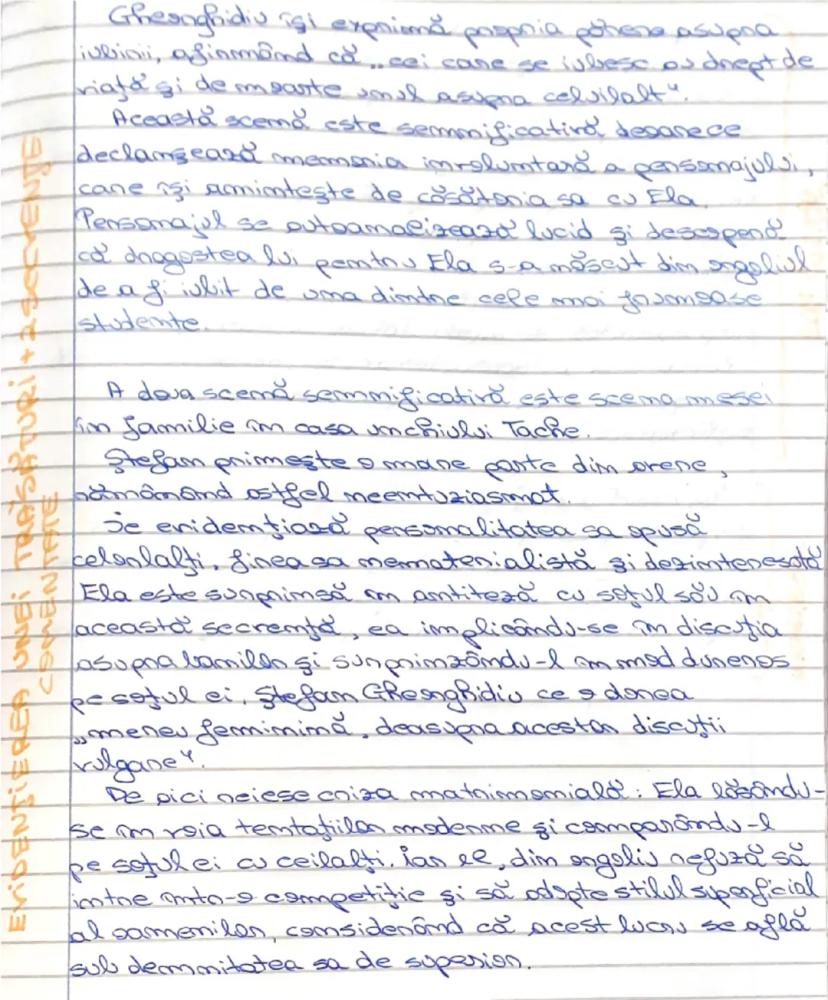 Gheorghidiu își exprimă propria părere asupra
iubirii, afirmând că „cei care se iubesc au drept de
viață și de moarte unul asupra celuilalt”.
Această scenă este semnificativă, deoarece
declanșează memoria involuntară a personajului,
care își amintește de căsătoria sa cu Ela.
Personajul se autoanalizează lucid și descoperă
că dragostea lui pentru Ela s-a născut din orgoliul
de a fi iubit de una dintre cele mai frumoase
studente.
A doua scenă semnificativă este scena mesei
în familie în casa unchiului Tache.
Ștefan primește o mare parte din avere,
rămânând astfel neentuziasmat.
Se evidențiază personalitatea sa opusă
celorlalți, firea sa nematerialistă și dezinteresată
Ela este surprinsă în antiteză cu soțul său în
această secvență, ea implicându-se în discuția
asupra banilor și surprinzându-l în mod dureros
pe soțul ei, Ștefan Gheorghidiu ce o dorea
„mereu feminină, deasupra acestor discuții
vulgare”.
De aici reiese criza matrimonială: Ela lăsându-
se în voia tentațiilor moderne și comparându-l
pe soțul ei cu ceilalți. Iar el, din orgoliu refuză să
intre într-o competiție și să adopte stilul superficial
al oamenilor, considerând că acest lucru se află
sub demnitatea sa de superior.
EVIDENȚIEREA UNEI TRĂSĂTURI + 2 SECVENȚE
COMENTATE